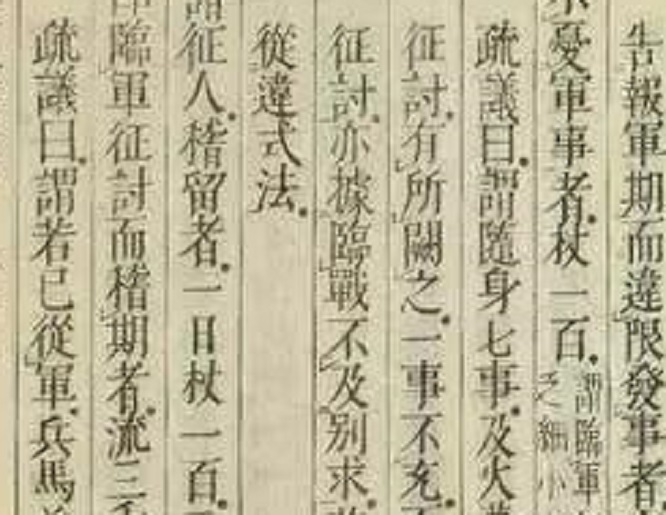 告報軍期而違限發事者
憂軍事者杖一百謂臨軍
之細小
疏議曰謂隨身七事及火
征討有所闕之一事不充
征討亦據臨戰不及别求
從違式法
征人稽留者一日杖一百
臨軍征討而稽期者流三
疏議曰謂若已從軍兵馬